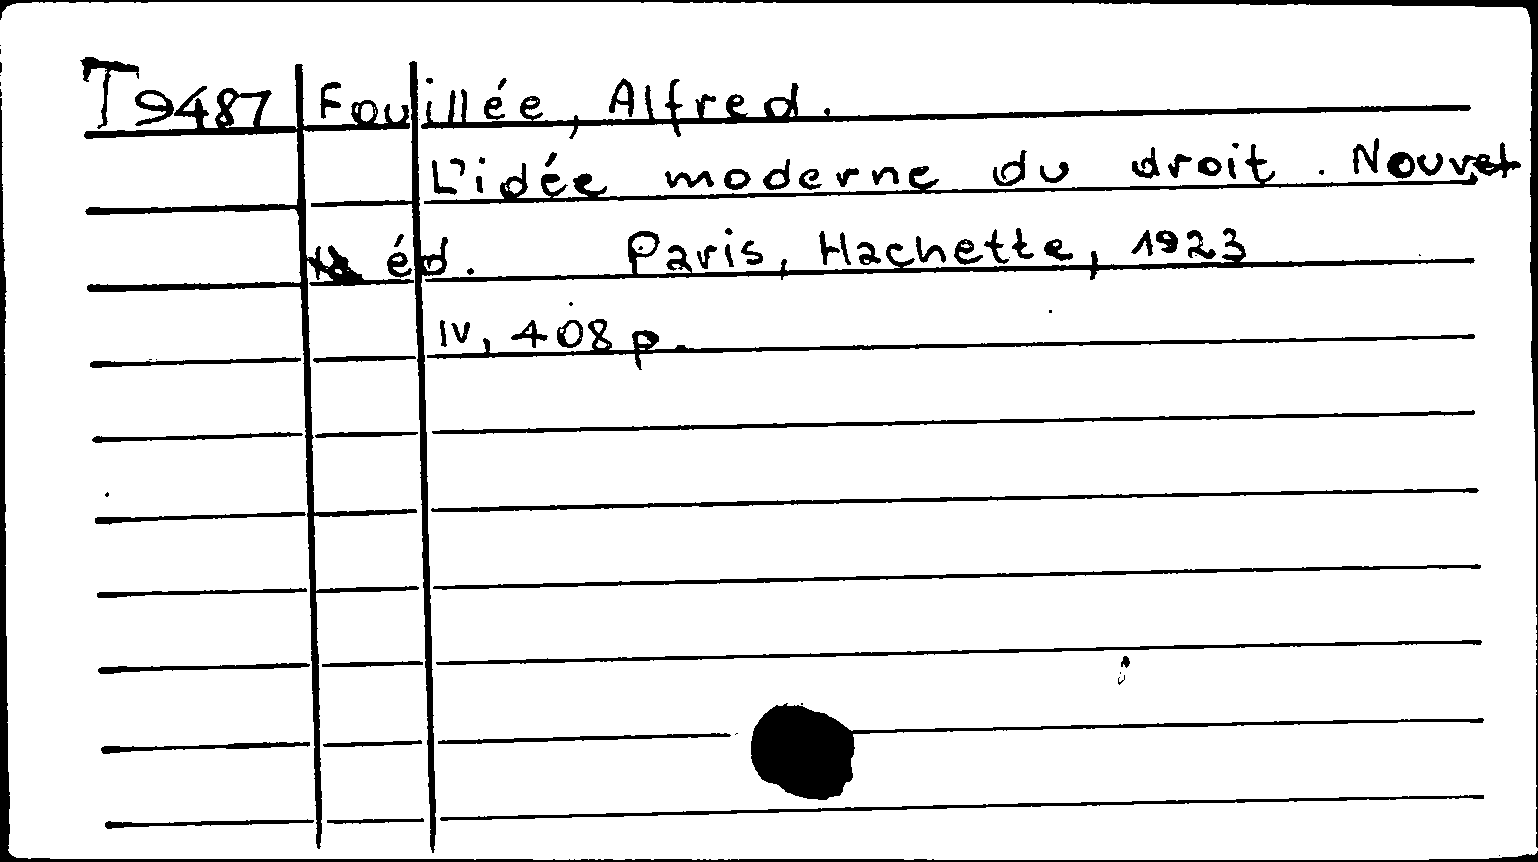 T9487 Fouillée, Alfred.
L'idée moderne du droit. Nouvel
éd. Paris, Hachette, 1923
IV, 408 p.